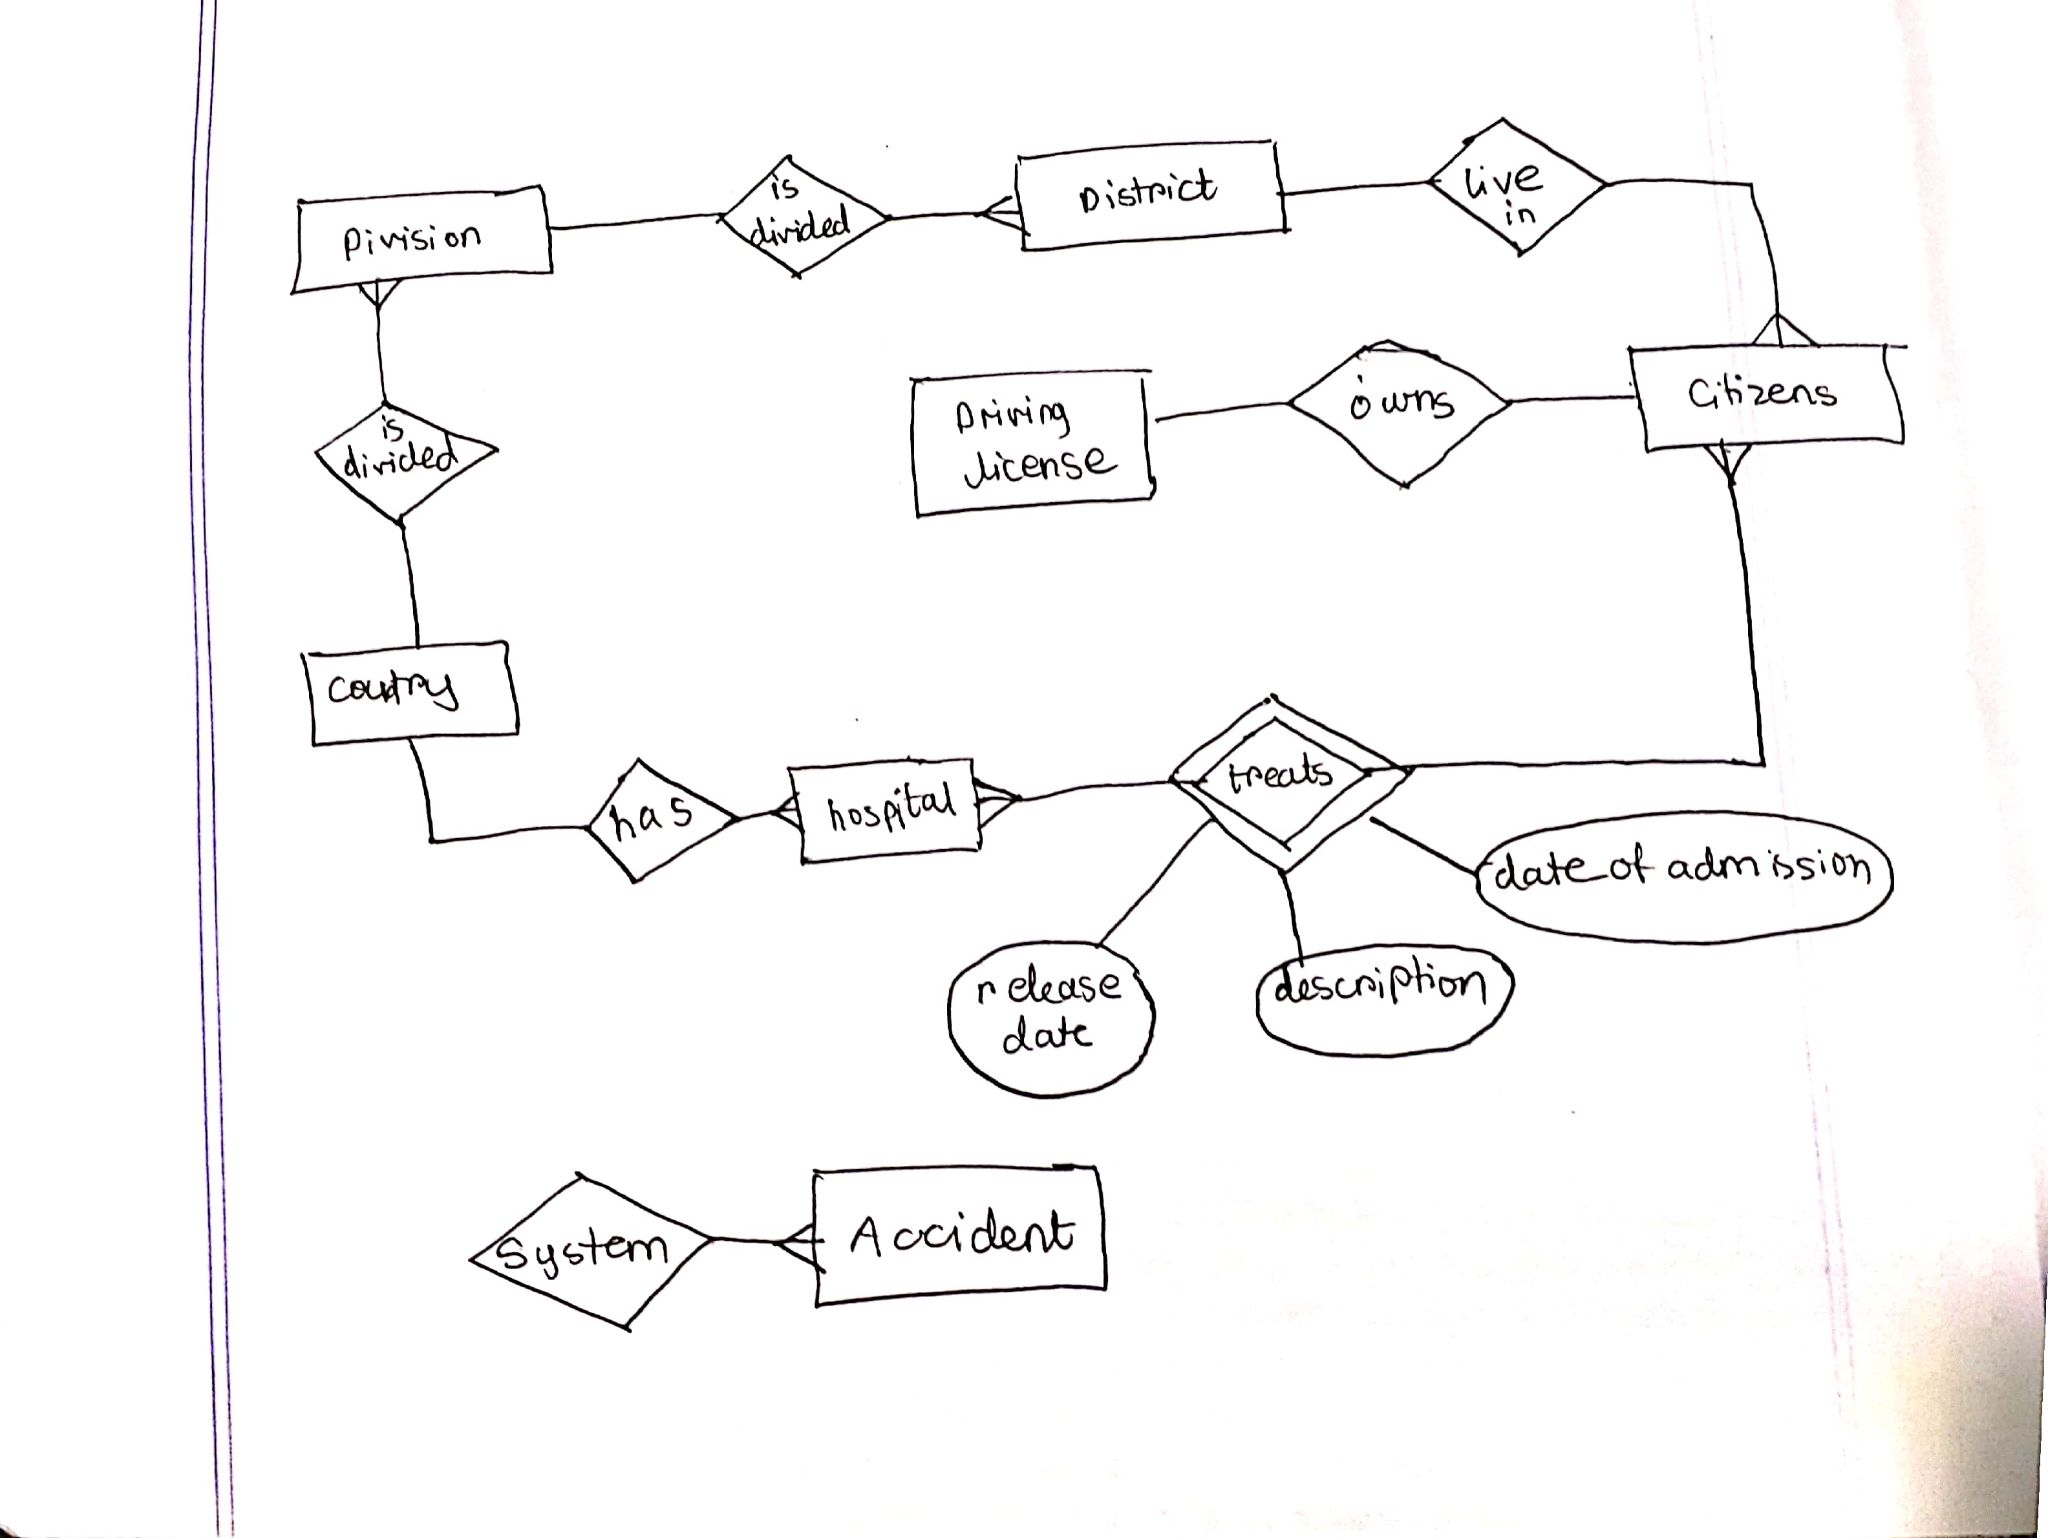 is
divided
District
live
in
Division
Driving
license
owns
Citizens
is
divided
Country
has
hospital
treats
date of admission
release
date
description
System
Accident